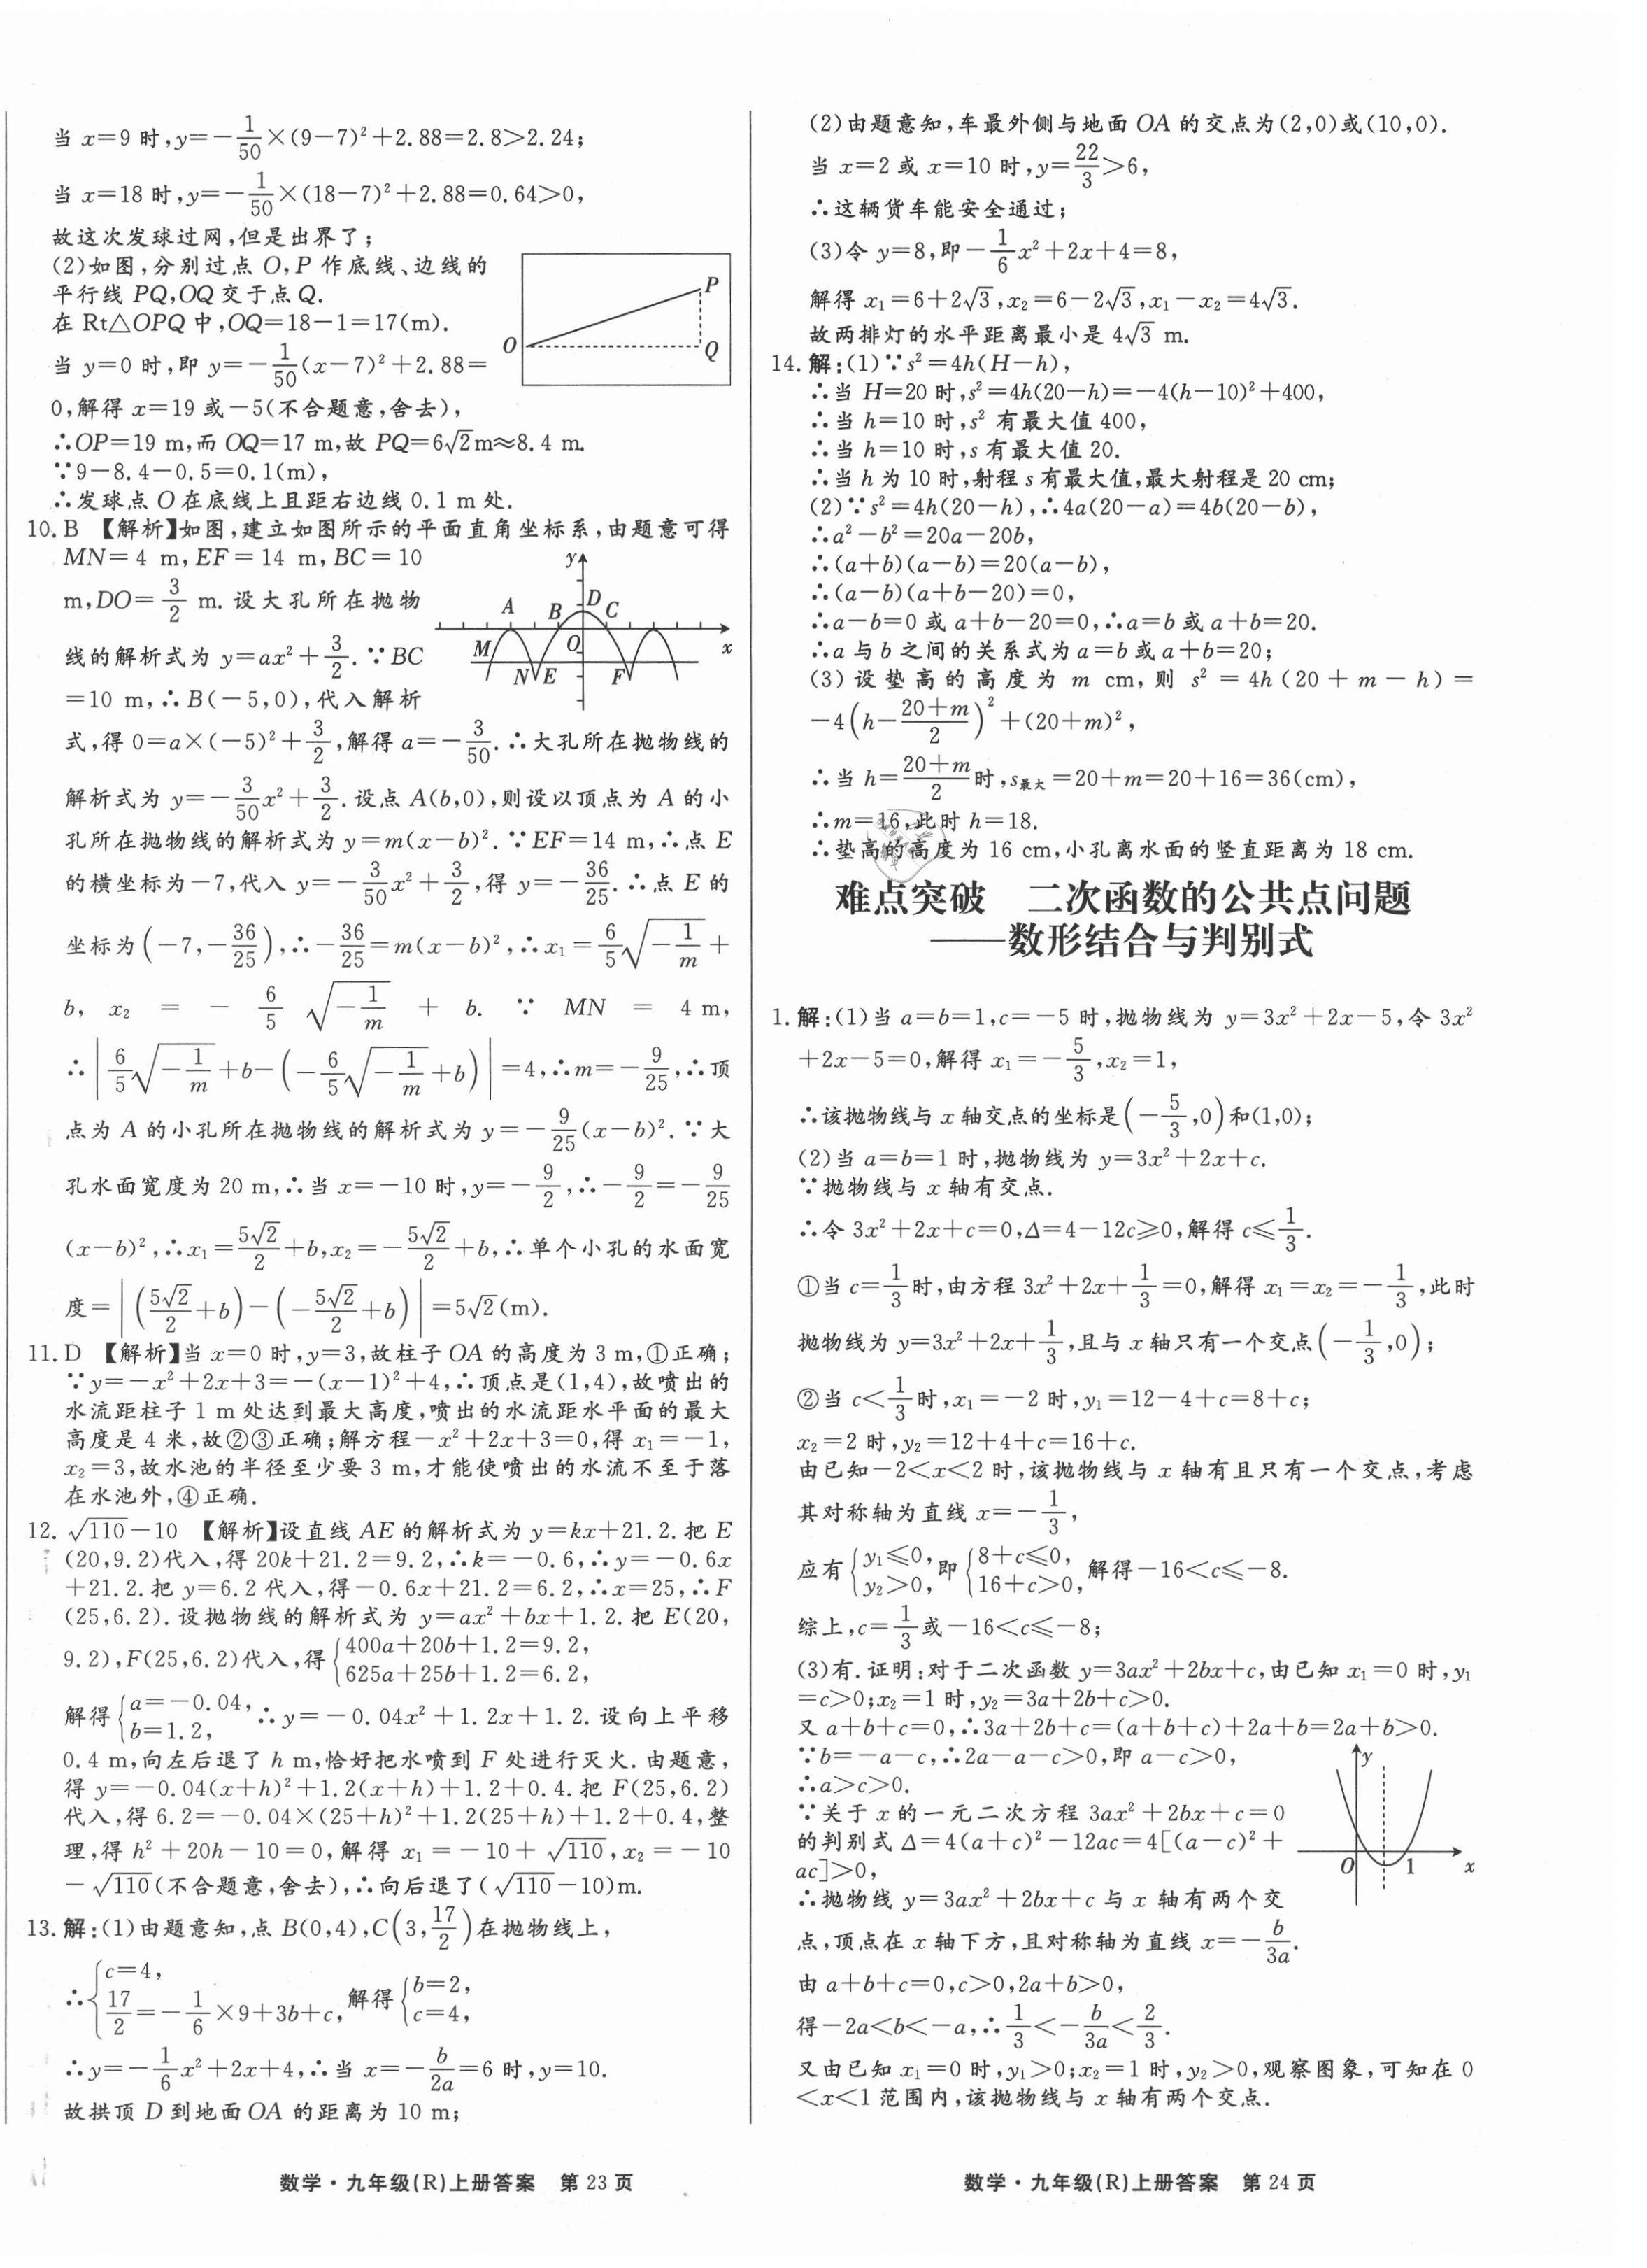 当 x=9 时,y=-1/50×(9-7)²+2.88=2.8>2.24;
当 x=18 时,y=-1/50×(18-7)²+2.88=0.64>0,
故这次发球过网,但是出界了;
(2)如图,分别过点 O,P 作底线、边线的
平行线 PQ,OQ 交于点 Q.
在 Rt△OPQ 中,OQ=18-1=17(m).
当 y=0 时,即 y=-1/50(x-7)²+2.88=
0,解得 x=19 或-5(不合题意,舍去),
∴OP=19 m,而 OQ=17 m,故 PQ=6√2m≈8.4 m.
∵9-8.4-0.5=0.1(m),
∴发球点 O 在底线上且距右边线 0.1 m 处.
P
O
Q
10. B 【解析】如图,建立如图所示的平面直角坐标系,由题意可得
MN=4 m,EF=14 m,BC=10
m,DO=3/2 m. 设大孔所在抛物
线的解析式为 y=ax²+3/2. ∵BC
=10 m,∴B(-5,0),代入解析
y
A B D C
M O x
N E F
式,得 0=a×(-5)²+3/2,解得 a=-3/50. ∴大孔所在抛物线的
解析式为 y=-3/50x²+3/2. 设点 A(b,0),则设以顶点为 A 的小
孔所在抛物线的解析式为 y=m(x-b)². ∵EF=14 m,∴点 E
的横坐标为-7,代入 y=-3/50x²+3/2,得 y=-36/25. ∴点 E 的
坐标为(-7,-36/25),∴-36/25=m(x-b)²,∴x₁=6/5√(-1/m)+
b, x₂ = - 6/5 √(-1/m) + b. ∵ MN = 4 m,
∴|6/5√(-1/m)+b-(-6/5√(-1/m)+b)|=4,∴m=-9/25,∴顶
点为 A 的小孔所在抛物线的解析式为 y=-9/25(x-b)². ∵大
孔水面宽度为 20 m,∴当 x=-10 时,y=-9/2,∴-9/2=-9/25
(x-b)²,∴x₁=5√2/2+b,x₂=-5√2/2+b,∴单个小孔的水面宽
度=|(5√2/2+b)-(-5√2/2+b)|=5√2(m).
11. D 【解析】当 x=0 时,y=3,故柱子 OA 的高度为 3 m,①正确;
∵y=-x²+2x+3=-(x-1)²+4,∴顶点是(1,4),故喷出的
水流距柱子 1 m 处达到最大高度,喷出的水流距水平面的最大
高度是 4 米,故②③正确;解方程-x²+2x+3=0,得 x₁=-1,
x₂=3,故水池的半径至少要 3 m,才能使喷出的水流不至于落
在水池外,④正确.
12. √110-10 【解析】设直线 AE 的解析式为 y=kx+21.2. 把 E
(20,9.2)代入,得 20k+21.2=9.2,∴k=-0.6,∴y=-0.6x
+21.2. 把 y=6.2 代入,得-0.6x+21.2=6.2,∴x=25,∴F
(25,6.2). 设抛物线的解析式为 y=ax²+bx+1.2. 把 E(20,
9.2),F(25,6.2)代入,得{400a+20b+1.2=9.2,
625a+25b+1.2=6.2,
解得{a=-0.04, b=1.2, ∴y=-0.04x²+1.2x+1.2. 设向上平移
0.4 m,向左后退了 h m,恰好把水喷到 F 处进行灭火. 由题意,
得 y=-0.04(x+h)²+1.2(x+h)+1.2+0.4. 把 F(25,6.2)
代入,得 6.2=-0.04×(25+h)²+1.2(25+h)+1.2+0.4,整
理,得 h²+20h-10=0,解得 x₁=-10+√110,x₂=-10
-√110(不合题意,舍去),∴向后退了(√110-10)m.
13. 解:(1)由题意知,点 B(0,4),C(3,17/2)在抛物线上,
∴{c=4, 17/2=-1/6×9+3b+c, 解得{b=2, c=4,
∴y=-1/6x²+2x+4,∴当 x=-b/2a=6 时,y=10.
故拱顶 D 到地面 OA 的距离为 10 m;
数学·九年级(R)上册答案 第 23 页
(2)由题意知,车最外侧与地面 OA 的交点为(2,0)或(10,0).
当 x=2 或 x=10 时,y=22/3>6,
∴这辆货车能安全通过;
(3)令 y=8,即-1/6x²+2x+4=8,
解得 x₁=6+2√3,x₂=6-2√3,x₁-x₂=4√3.
故两排灯的水平距离最小是 4√3 m.
14. 解:(1)∵s²=4h(H-h),
∴当 H=20 时,s²=4h(20-h)=-4(h-10)²+400,
∴当 h=10 时,s² 有最大值 400,
∴当 h=10 时,s 有最大值 20.
∴当 h 为 10 时,射程 s 有最大值,最大射程是 20 cm;
(2)∵s²=4h(20-h),∴4a(20-a)=4b(20-b),
∴a²-b²=20a-20b,
∴(a+b)(a-b)=20(a-b),
∴(a-b)(a+b-20)=0,
∴a-b=0 或 a+b-20=0,∴a=b 或 a+b=20.
∴a 与 b 之间的关系式为 a=b 或 a+b=20;
(3)设垫高的高度为 m cm,则 s²=4h(20+m-h)=
-4(h-(20+m)/2)²+(20+m)²,
∴当 h=(20+m)/2时,s最大=20+m=20+16=36(cm),
∴m=16,此时 h=18.
∴垫高的高度为 16 cm,小孔离水面的竖直距离为 18 cm.
难点突破 二次函数的公共点问题
——数形结合与判别式
1. 解:(1)当 a=b=1,c=-5 时,抛物线为 y=3x²+2x-5,令 3x²
+2x-5=0,解得 x₁=-5/3,x₂=1,
∴该抛物线与 x 轴交点的坐标是(-5/3,0)和(1,0);
(2)当 a=b=1 时,抛物线为 y=3x²+2x+c.
∵抛物线与 x 轴有交点.
∴令 3x²+2x+c=0,Δ=4-12c≥0,解得 c≤1/3.
①当 c=1/3时,由方程 3x²+2x+1/3=0,解得 x₁=x₂=-1/3,此时
抛物线为 y=3x²+2x+1/3,且与 x 轴只有一个交点(-1/3,0);
②当 c<1/3时,x₁=-2 时,y₁=12-4+c=8+c;
x₂=2 时,y₂=12+4+c=16+c.
由已知-2<x<2 时,该抛物线与 x 轴有且只有一个交点,考虑
其对称轴为直线 x=-1/3,
应有{y₁≤0, y₂>0, 即{8+c≤0, 16+c>0, 解得-16<c≤-8.
综上,c=1/3或-16<c≤-8;
(3)有. 证明:对于二次函数 y=3ax²+2bx+c,由已知 x₁=0 时,y₁
=c>0;x₂=1 时,y₂=3a+2b+c>0.
又 a+b+c=0,∴3a+2b+c=(a+b+c)+2a+b=2a+b>0.
∵b=-a-c,∴2a-a-c>0,即 a-c>0,
∴a>c>0.
∵关于 x 的一元二次方程 3ax²+2bx+c=0
的判别式 Δ=4(a+c)²-12ac=4[(a-c)²+
ac]>0,
∴抛物线 y=3ax²+2bx+c 与 x 轴有两个交
y
O 1 x
点,顶点在 x 轴下方,且对称轴为直线 x=-b/3a.
由 a+b+c=0,c>0,2a+b>0,
得-2a<b<-a,∴1/3<-b/3a<2/3.
又由已知 x₁=0 时,y₁>0;x₂=1 时,y₂>0,观察图象,可知在 0
<x<1 范围内,该抛物线与 x 轴有两个交点.
数学·九年级(R)上册答案 第 24 页